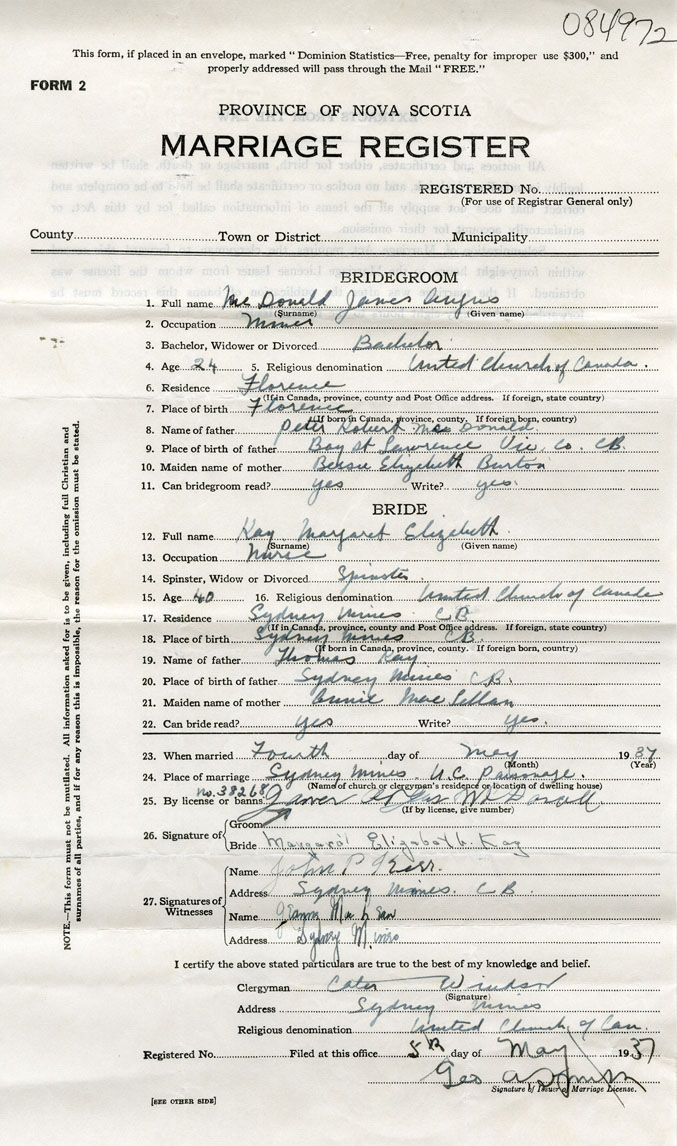 084972
This form, if placed in an envelope, marked "Dominion Statistics—Free, penalty for improper use $300," and
properly addressed will pass through the Mail "FREE."
FORM 2
PROVINCE OF NOVA SCOTIA
MARRIAGE REGISTER
REGISTERED No.
(For use of Registrar General only)
County Town or District Municipality
BRIDEGROOM
1. Full name McDonald James Angus
(Surname) (Given name)
2. Occupation Miner
3. Bachelor, Widower or Divorced Bachelor
4. Age 24 5. Religious denomination United Church of Canada.
6. Residence Florence
(If in Canada, province, county and Post Office address. If foreign, state country)
7. Place of birth Florence
(If born in Canada, province, county. If foreign born, country)
8. Name of father Peter Robert MacDonald
9. Place of birth of father Bay St Lawrence Vic. Co. CB
10. Maiden name of mother Bessie Elizabeth Burton
11. Can bridegroom read? yes Write? yes.
BRIDE
12. Full name Kay Margaret Elizabeth
(Surname) (Given name)
13. Occupation Nurse
14. Spinster, Widow or Divorced Spinster
15. Age 40 16. Religious denomination United Church of Canada
17. Residence Sydney Mines C B.
(If in Canada, province, county and Post Office address. If foreign, state country)
18. Place of birth Sydney Mines CB.
(If born in Canada, province, county. If foreign born, country)
19. Name of father Thomas Kay
20. Place of birth of father Sydney Mines CB.
21. Maiden name of mother Annie MacLellan
22. Can bride read? yes Write? yes.
23. When married Fourth day of May 1937
(Month) (Year)
24. Place of marriage Sydney Mines. U.C. Parsonage.
(Name of church or clergyman's residence or location of dwelling house)
25. By license or banns No. 38268
(If by license, give number)
26. Signature of
Groom
Bride Margaret Elizabeth Kay
27. Signatures of Witnesses
Name John P Kerr.
Address Sydney Mines. C B.
Name
Address Sydney Mines
I certify the above stated particulars are true to the best of my knowledge and belief.
Clergyman Windsor
(Signature)
Address Sydney Mines
Religious denomination United Church of Can.
Registered No. Filed at this office 5th day of May 1937
Geo A
Signature of Issuer of Marriage License.
[SEE OTHER SIDE]
NOTE.—This form must not be mutilated. All information asked for is to be given, including full Christian and
surnames of all parties, and if for any reason this is impossible, the reason for the omission must be stated.